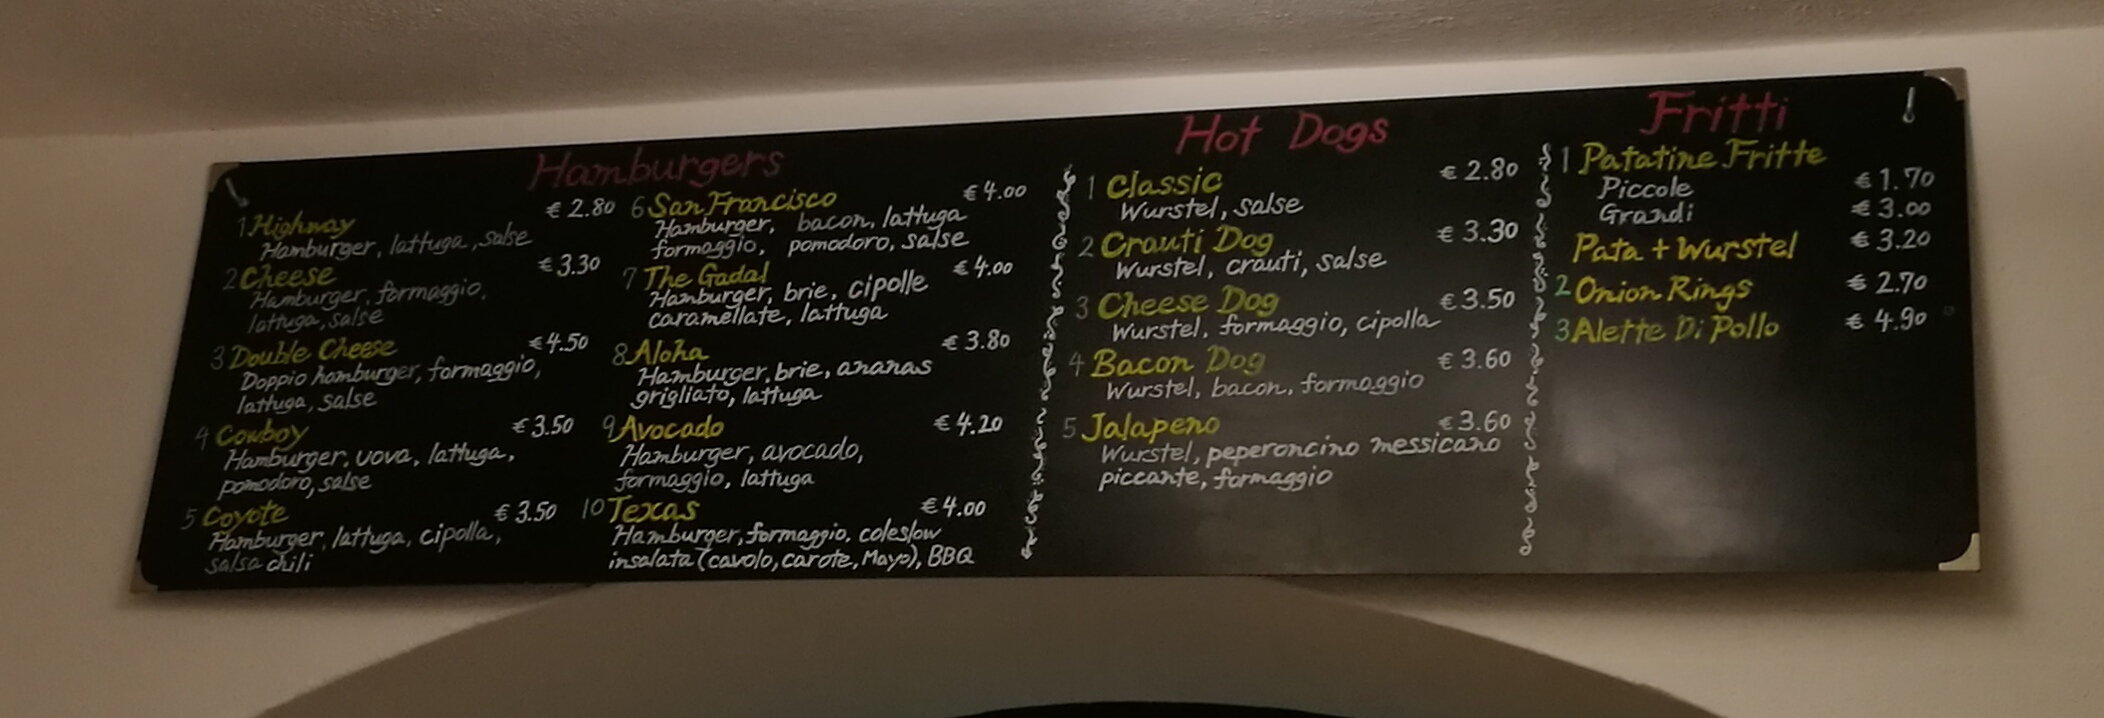 Hamburgers
1 Highway € 2.80
Hamburger, lattuga, salse
2 Cheese € 3.30
Hamburger, formaggio,
lattuga, salse
3 Double Cheese € 4.50
Doppio hamburger, formaggio,
lattuga, salse
4 Cowboy € 3.50
Hamburger, uova, lattuga,
pomodoro, salse
5 Coyote € 3.50
Hamburger, lattuga, cipolla,
salsa chili
6 San Francisco € 4.00
Hamburger, bacon, lattuga
formaggio, pomodoro, salse
7 The Gada! € 4.00
Hamburger, brie, cipolle
caramellate, lattuga
8 Aloha € 3.80
Hamburger, brie, ananas
grigliato, lattuga
9 Avocado € 4.20
Hamburger, avocado,
formaggio, lattuga
10 Texas € 4.00
Hamburger, formaggio, coleslow
insalata (cavolo, carote, Mayo), BBQ
Hot Dogs
1 Classic € 2.80
Wurstel, salse
2 Crauti Dog € 3.30
Wurstel, crauti, salse
3 Cheese Dog € 3.50
Wurstel, formaggio, cipolla
4 Bacon Dog € 3.60
Wurstel, bacon, formaggio
5 Jalapeno € 3.60
Wurstel, peperoncino messicano
piccante, formaggio
Fritti
1 Patatine Fritte
Piccole € 1.70
Grandi € 3.00
Pata + Wurstel € 3.20
2 Onion Rings € 2.70
3 Alette Di Pollo € 4.90